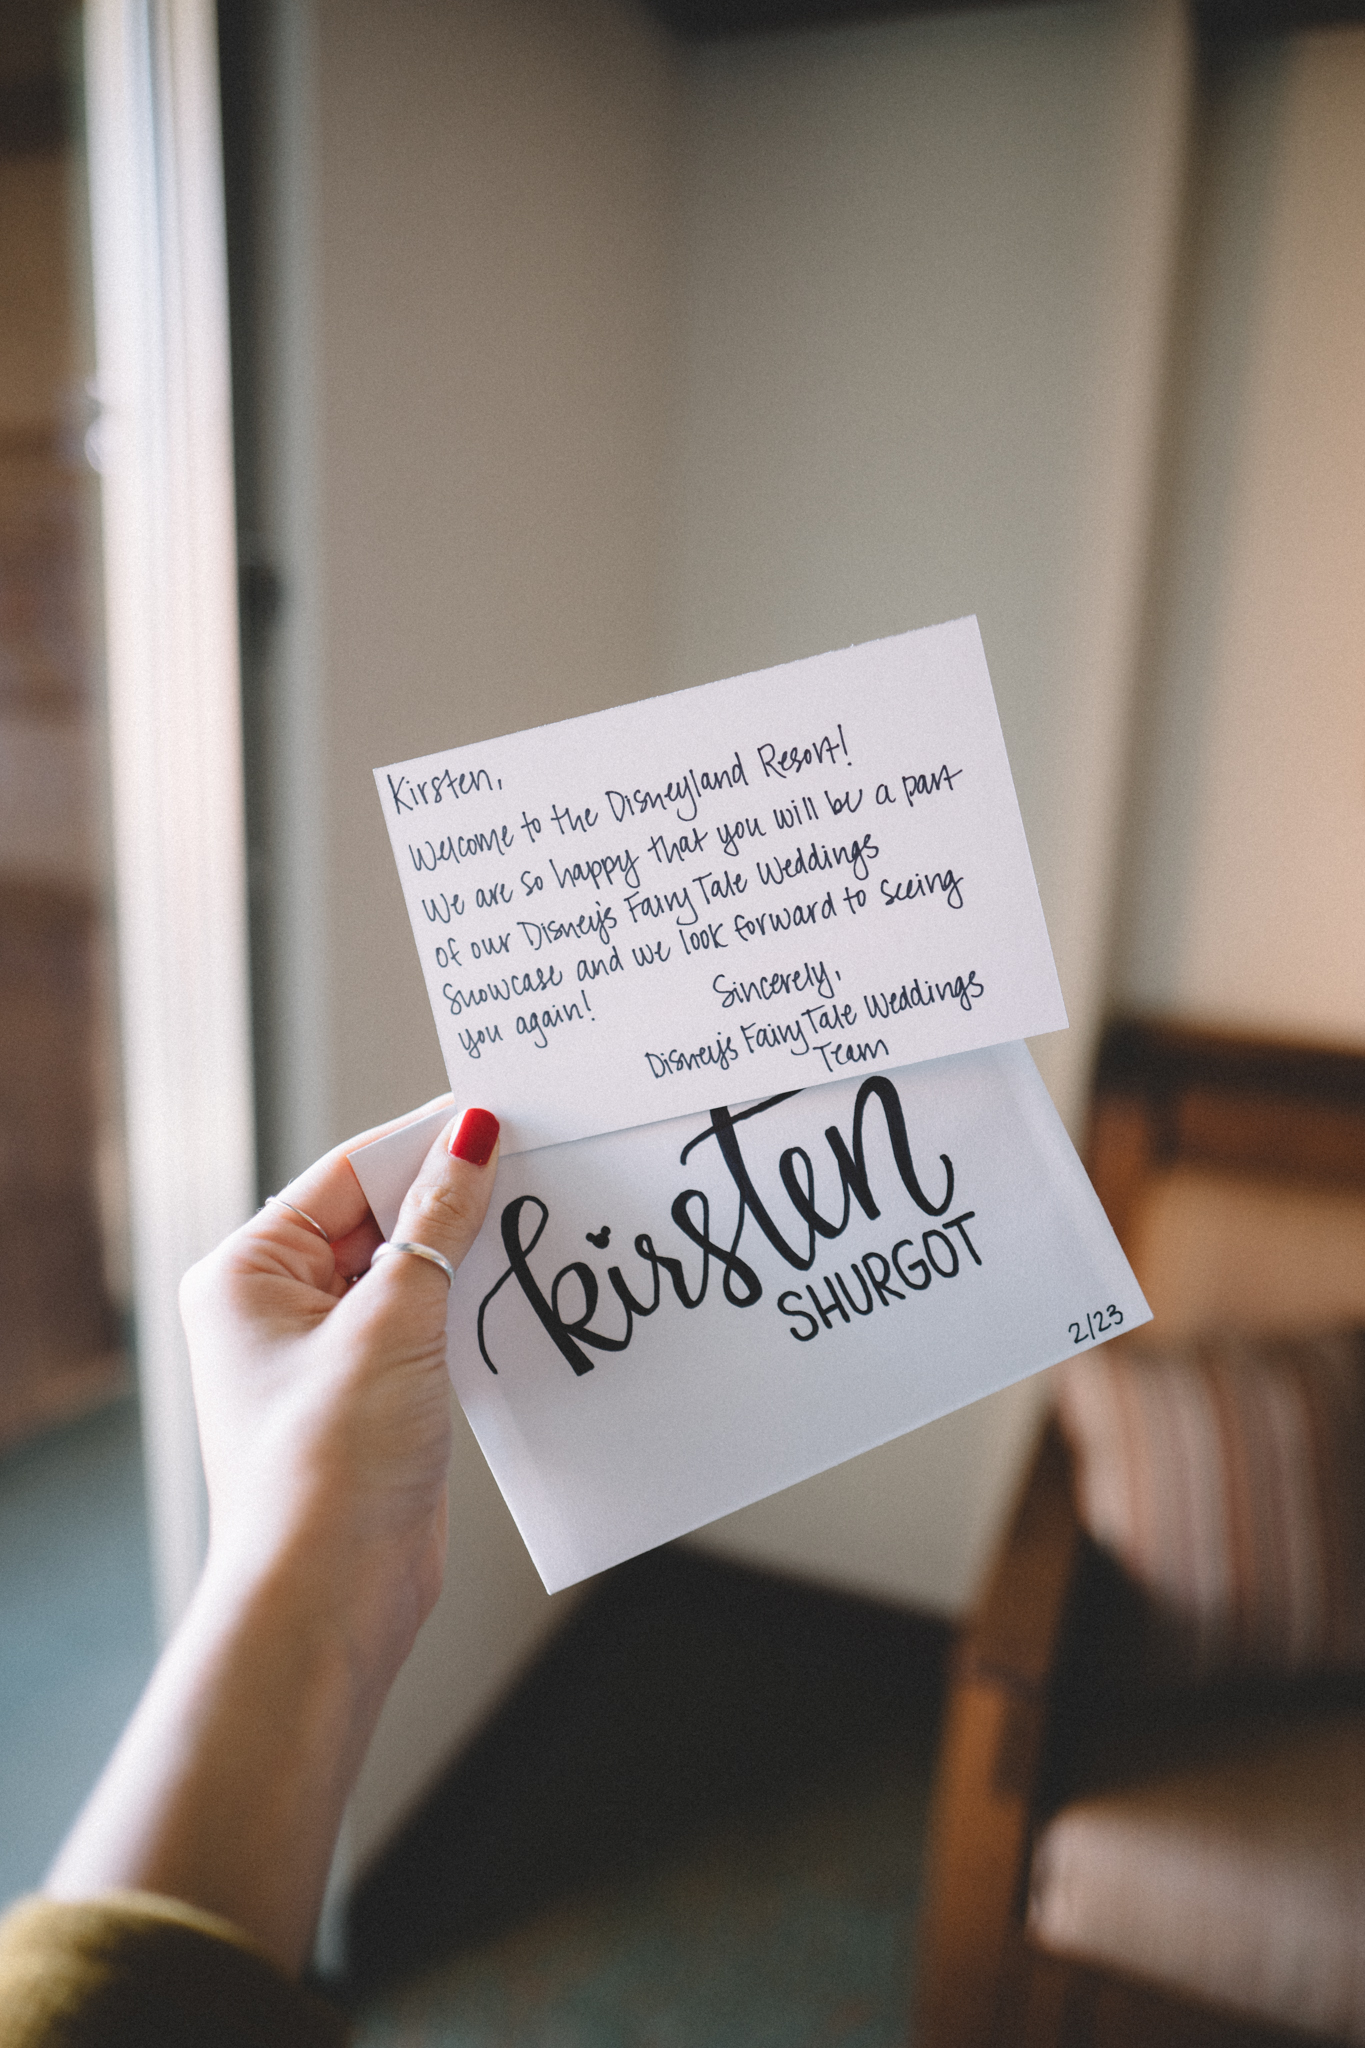 Kirsten,
Welcome to the Disneyland Resort!
We are so happy that you will be a part
of our Disney's Fairy Tale Weddings
Showcase and we look forward to seeing
you again!
Sincerely,
Disney's Fairy Tale Weddings
Team
kirsten
SHURGOT
2/23